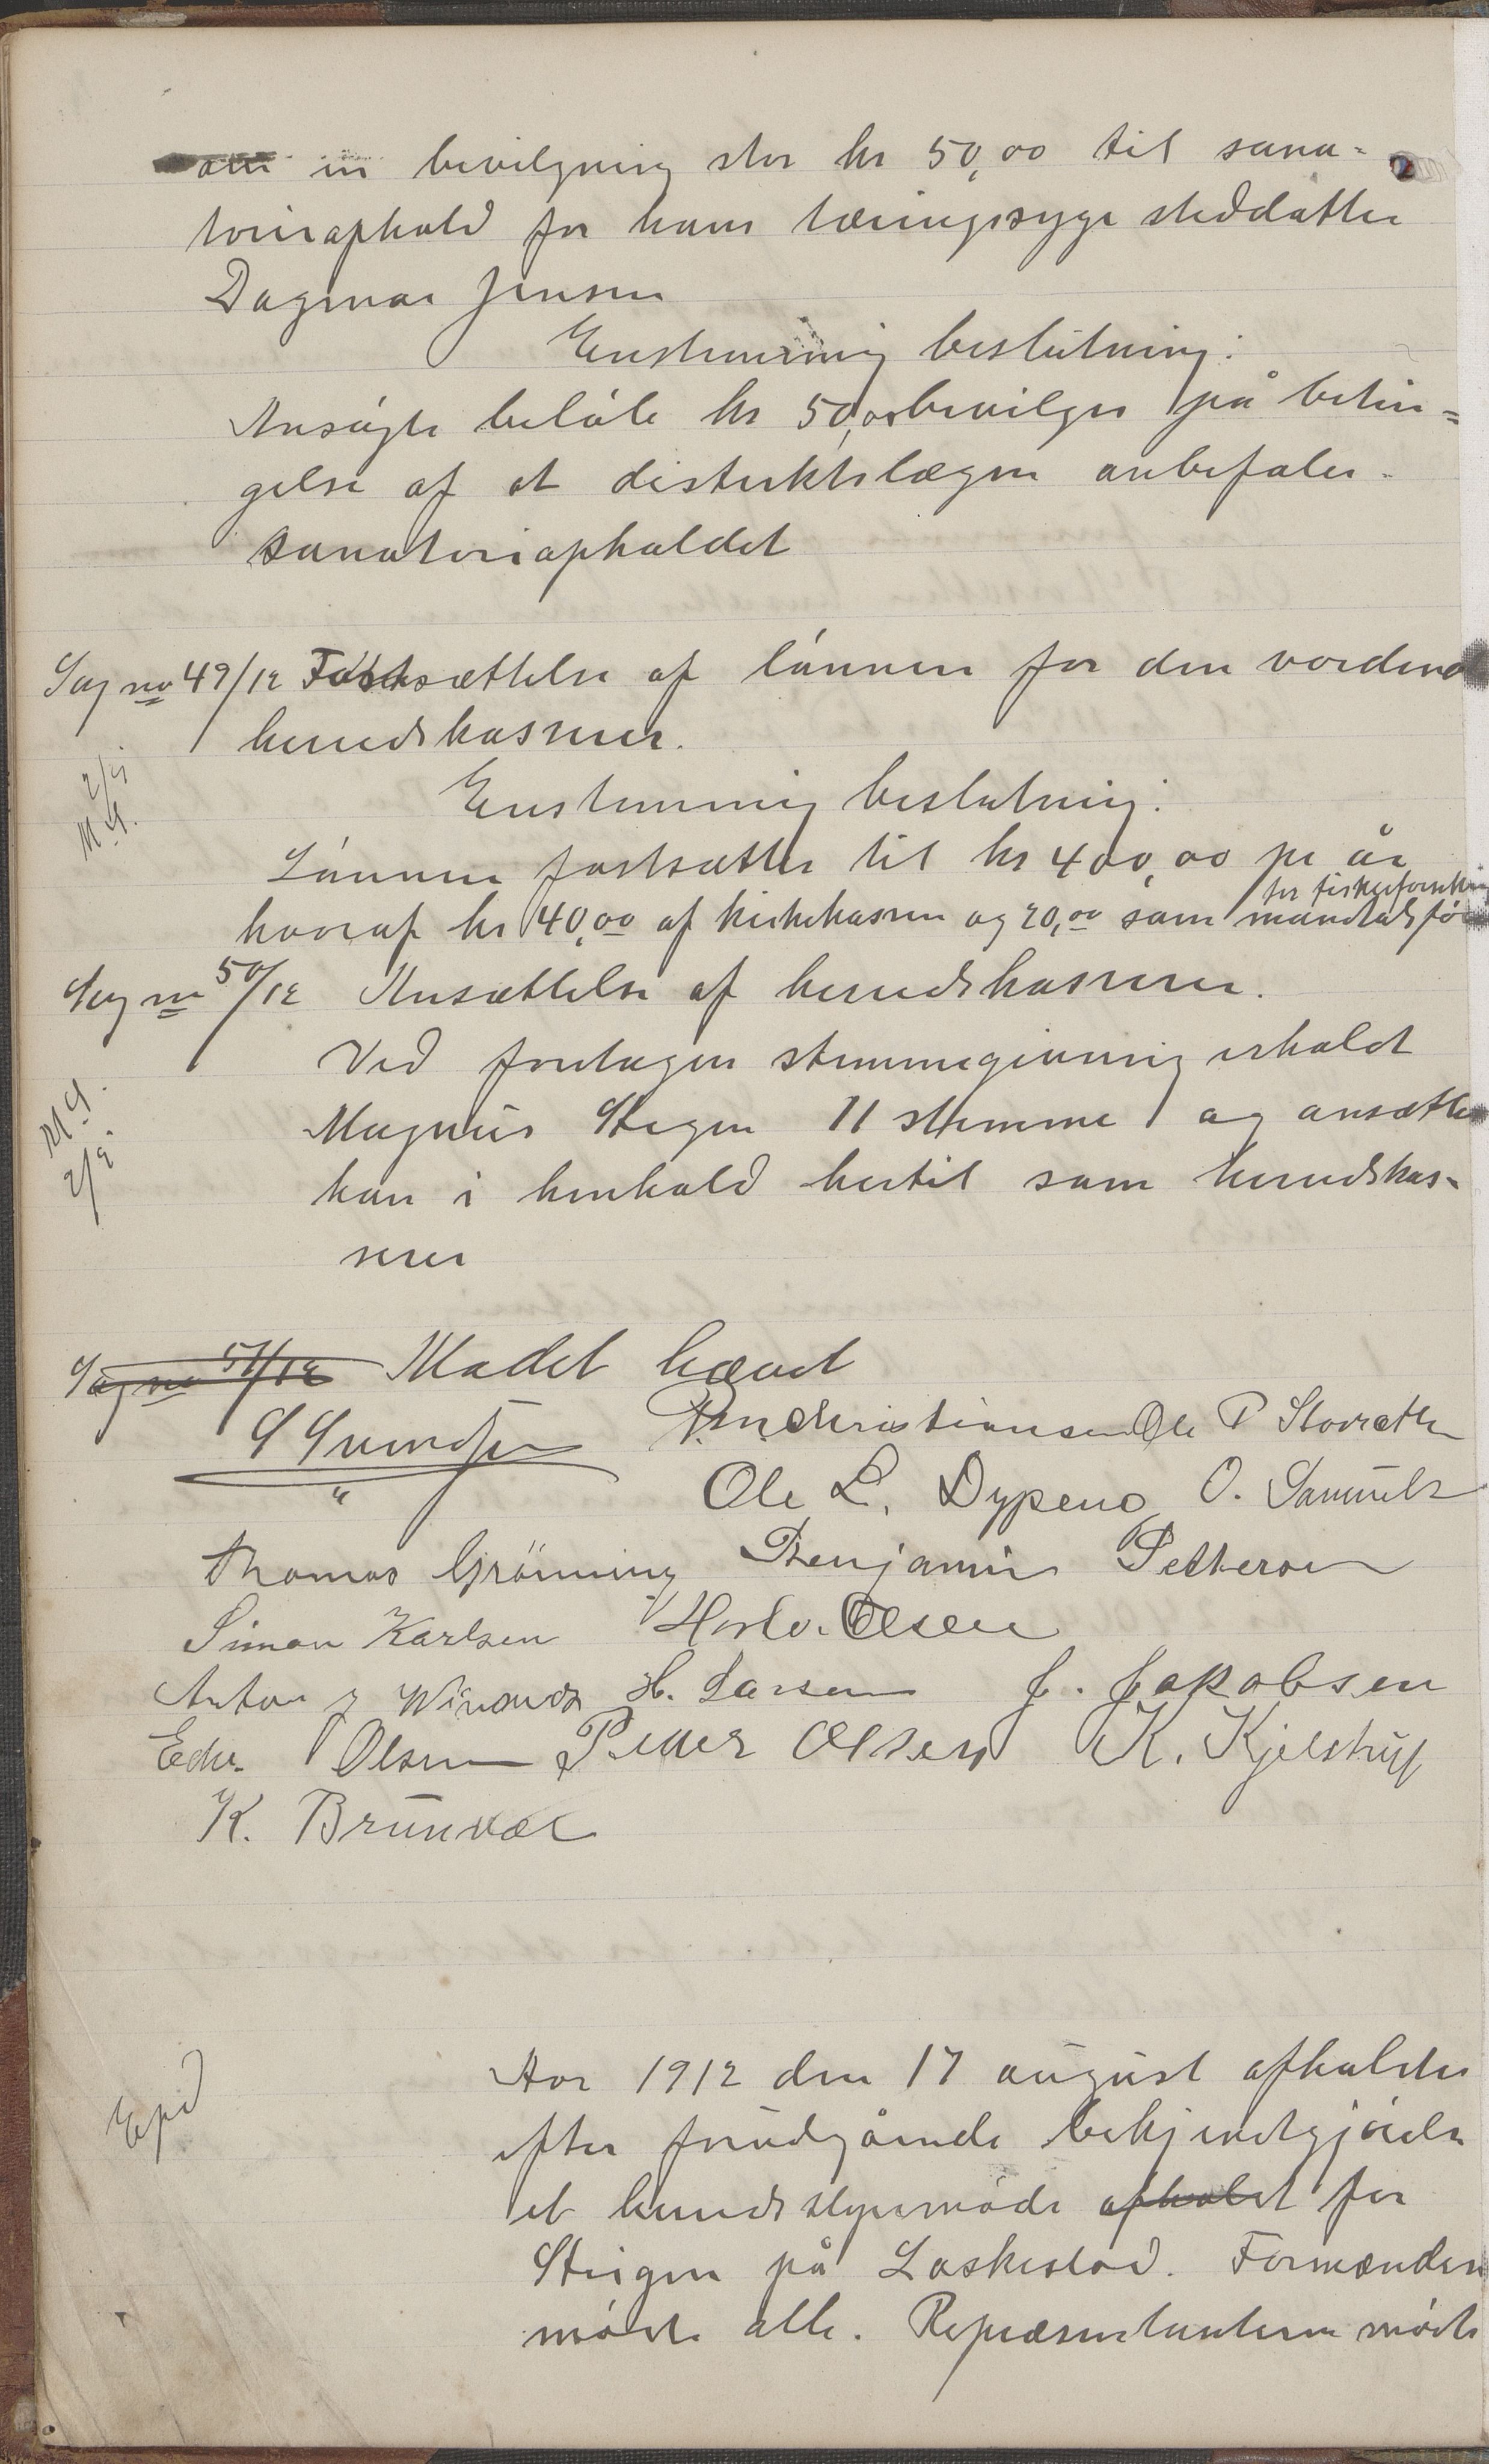 om en bevilgning stor kr 50,00 til sana-
torieophold for hans tæringssyge steddatter
Dagmar Jensen
Enstemmig beslutning:
Ansøgte beløb kr 50,00 bevilges på betin-
gelse af at distriktslægen anbefaler
sanatorieopholdet
Sag no 49/12 Fastsættelse af lønnen for den vordende
herredskasserer.
2/9
M.G.
Enstemmig beslutning:
Lønnen fastsættes til kr 400,00 pr år
for fiskerforsikring
hvoraf kr 40,00 af kirkekassen og 20,00 som mandtalsfø
Sag no 50/12 Ansættelse af herredskasserer.
Ved foretagen stemmegivning erholdt
M G.
2/9
Magnus Stegen 11 stemmer og ansættes
han i henhold hertil som herredskas-
serer
Sag no 51/12 Mødet hævet
Chr. Christiansen Ole P Storræth
Ole L. Dypeng O. Samuels
Thomas Grønning Benjamin Pettersen
Simon Karlsen Olsen
Anton J H. Larsen J. Jakobsen
Edv. Olsen Peder Olsen K. Kjelstrup
K. Brunvæl
Epd
Aar 1912 den 17 august afholdtes
efter forudgående bekjendtgjørelse
et herredsstyremøde afholdt for
Steigen på Laskestad. Formænden
mødte alle. Repræsentanterne mødte